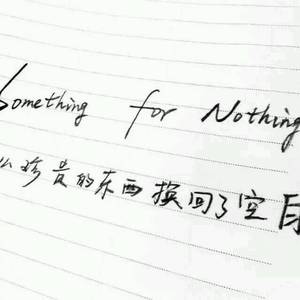 Something for Nothing
么珍贵的东西换回了空白